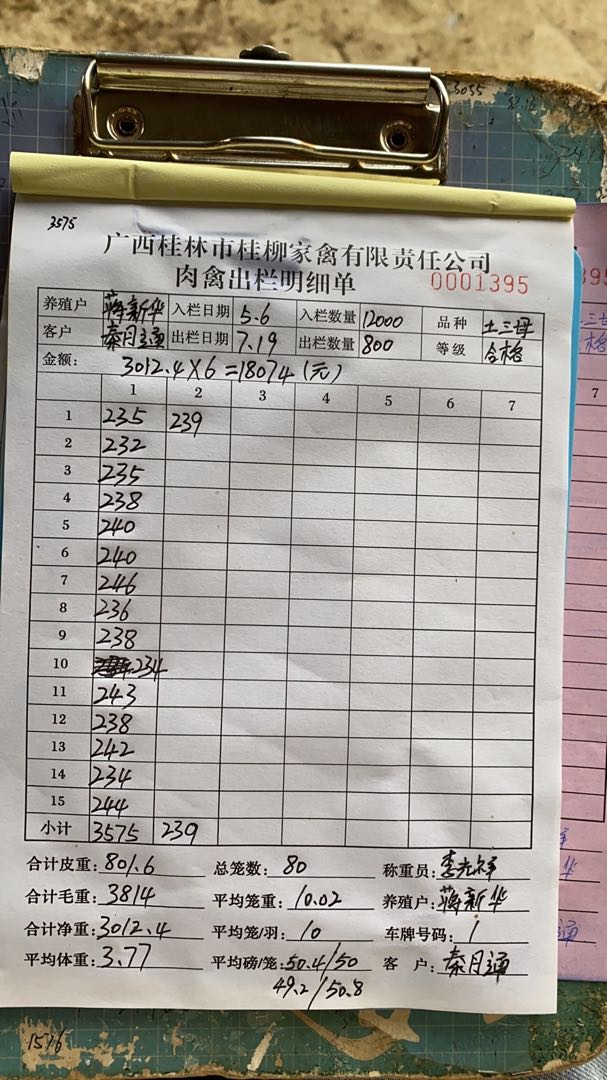 3055
3575
广西桂林市桂柳家禽有限责任公司
肉禽出栏明细单 0001395
养殖户 蒋新华 入栏日期 5.6 入栏数量 12000 品种 土三母
客户 秦月通 出栏日期 7.19 出栏数量 800 等级 合格
金额: 3012.4×6=18074(元)
1 2 3 4 5 6 7
1 235 239
2 232
3 235
4 238
5 240
6 240
7 246
8 236
9 238
10 234
11 243
12 238
13 242
14 234
15 244
小计 3575 239
合计皮重: 801.6 总笼数: 80 称重员: 李光祥
合计毛重: 3814 平均笼重: 10.02 养殖户: 蒋新华
合计净重: 3012.4 平均笼/羽: 10 车牌号码: 1
平均体重: 3.77 平均磅/笼: 50.4/50 客 户: 秦月通
49.2/50.8
1576
395
三母
格
7